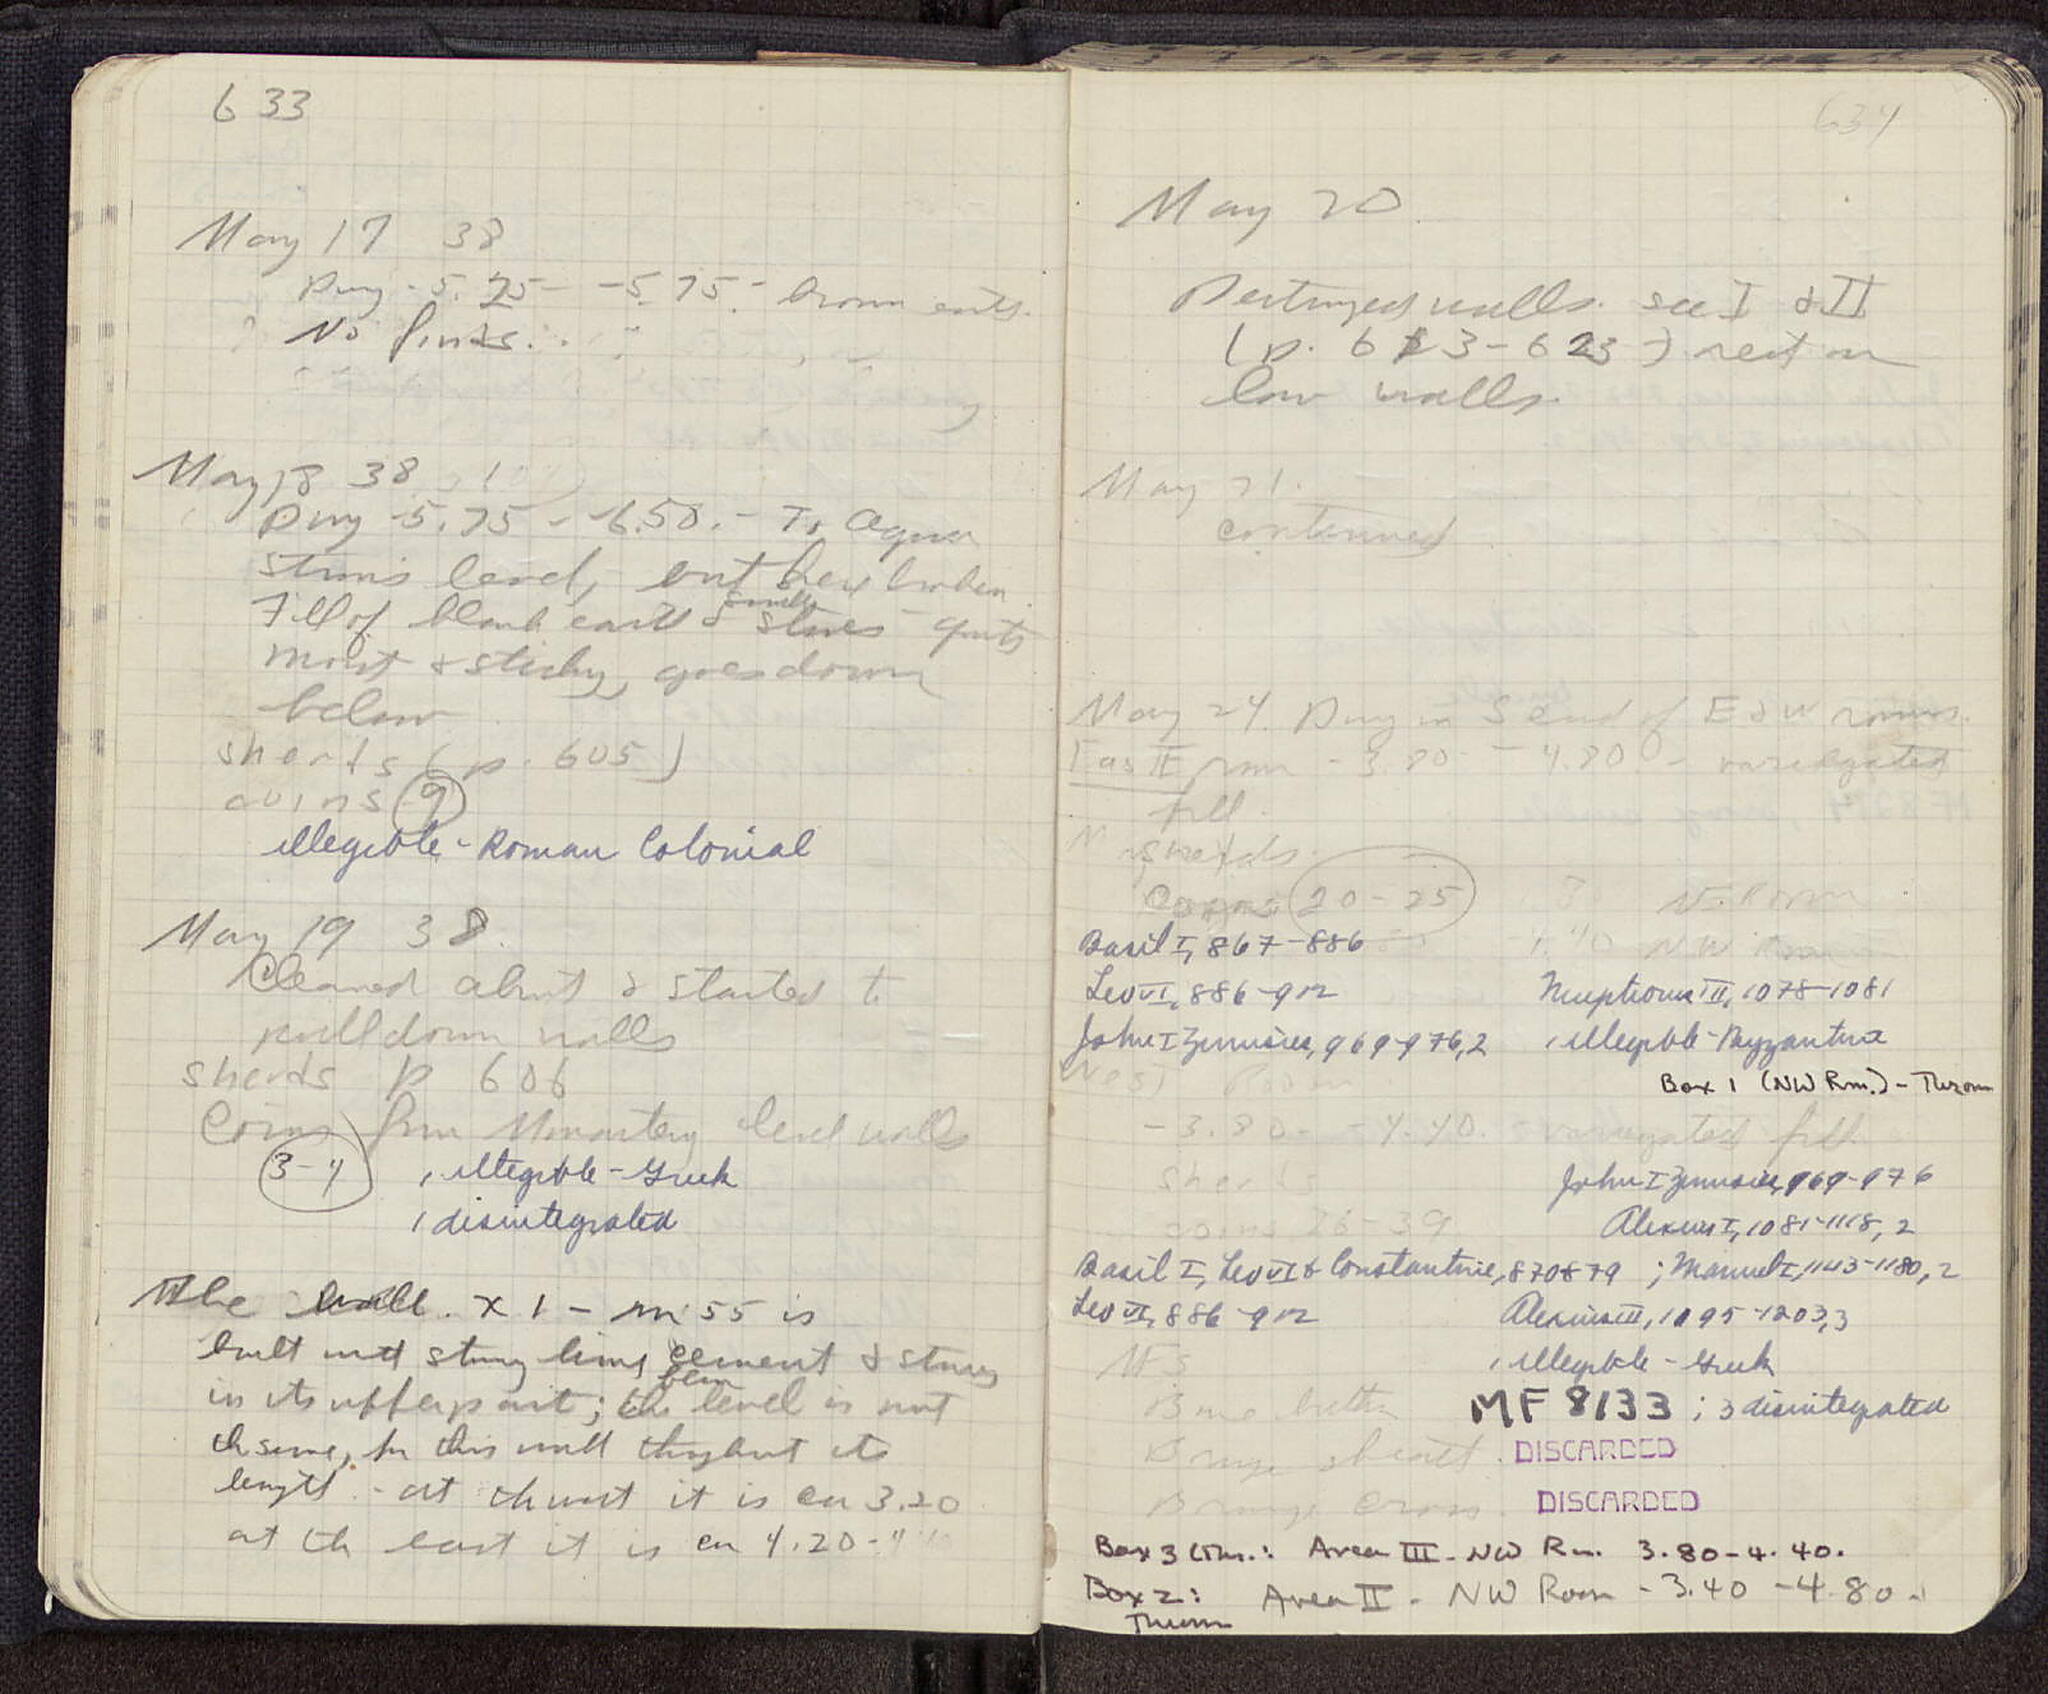 633
May 17 38
Dug -5.25 - -5.75 - brown earth.
No finds.
May 18 38
Dug -5.75 - -6.50. - To
level, but here broken
Fill of black earth & small stones quite
moist & sticky, goes down
below
sherds (p. 605)
coins 9
illegible - Roman Colonial
May 19 38.
Cleaned about & started to
pull down walls
sherds p 606
Coins from Monastery level walls
3-4 1 illegible - Greek
1 disintegrated
The wall x 1 - m 55 is
built with strong lime cement & stones
in its upper part; the level is not
th same, for this wall thruout its
length - at th west it is ca 3.20
at th east it is ca 4.20 -
634
May 20
Destroyed walls. see I & II
(p. 613-623) rest on
low walls.
May 21.
continued
May 24. Dug in S end of E & W rooms.
East II room -3.80 - -4.80 - variegated
fill.
sherds.
Coins 20-25
N. Room
NW Room
Basil I, 867-886
Leo VI, 886-912
Nicephorus III, 1078-1081
John I Zimisces, 969-976, 2
1 illegible - Byzantine
West Room
Box 1 (NW Rm.) - Thrown
-3.80 - -4.40. - variegated fill
sherds
John I Zimisces, 969-976
coins 26-39
Alexius I, 1081-1118, 2
Basil I, Leo VI & Constantine, 870-879 ; Manuel I, 1143-1180, 2
Leo VI, 886-912
Alexius III, 1195-1203, 3
MFs
1 illegible - Greek
MF 8133 ; 3 disintegrated
Bronze
DISCARDED
Bronze cross.
DISCARDED
Box 3 (Thr.: Area III - NW Rm. 3.80-4.40.
Box 2: Area II - NW Room -3.40 -4.80.
Thrown